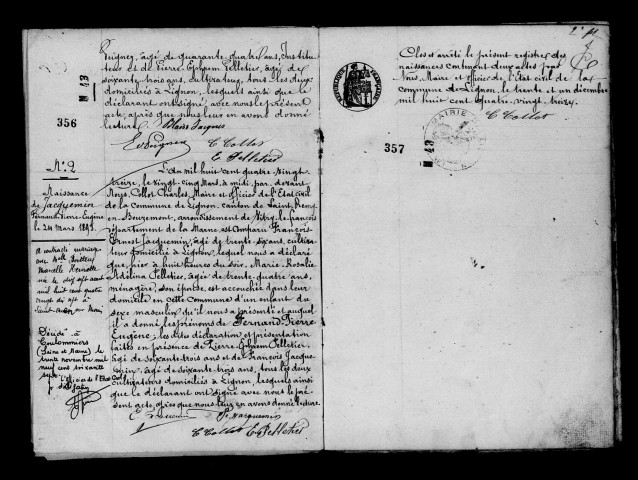 Seignez, âgé de quarante quatre ans, Institu
teur et de Pierre Ephrem Pelletier, âgé de
soixante trois ans, cultivateur, tous les deux
domiciliés à Lignon, lesquels ainsi que le
déclarant ont signé avec nous le présent
acte, après que nous leur en avons donné
lecture.
C Collot
E Pelletier
N 43
356
N° 2
Naissance
de Jacquemin
Fernand Pierre Eugène
le 24 mars 1893
A contracté mariage
Décédé à
Coulommiers
(Seine et Marne) le
trente novembre mil
neuf cent soixante
L'officier de l'Etat civil
L'An mil huit cent quatre vingt
treize, le vingt cinq Mars, à midi, par devant
Nous, Collot Charles, Maire et officier de l'Etat civil
de la Commune de Lignon, canton de Saint Remy
en Bouzemont, arrondissement de Vitry le françois
département de la Marne, est comparu François
Ernest Jacquemin, âgé de trente six ans, cultiva
teur domicilié à Lignon, lequel nous a déclaré
que hier à huit heures du soir, Marie Rosalie
Adelina Pelletier, âgée de trente quatre ans,
ménagère, son épouse, est accouchée dans leur
domicile en cette Commune d'un enfant du
sexe masculin qu'il nous a présenté et auquel
il a donné les prénoms de Fernand Pierre
Eugène; les dites déclaration et présentation
faites en présence de Pierre Ephrem Pelletier,
âgé de soixante trois ans et de François Jacque
min, âgé de soixante trois ans, tous les deux
cultivateurs domiciliés à Lignon, lesquels ainsi
que le déclarant ont signé avec nous le pré
sent acte, après que nous leur en avons donné lecture.
Jacquemin
C Collot E Pelletier
REPUBLIQUE FRANÇAISE
Clos et arrêté le présent registre des
naissances contenant deux actes par
Nous, Maire et officier de l'Etat civil de la
commune de Lignon, le trente et un décembre
mil huit cent quatre vingt treize.
C Collot
MAIRIE
357
N 43